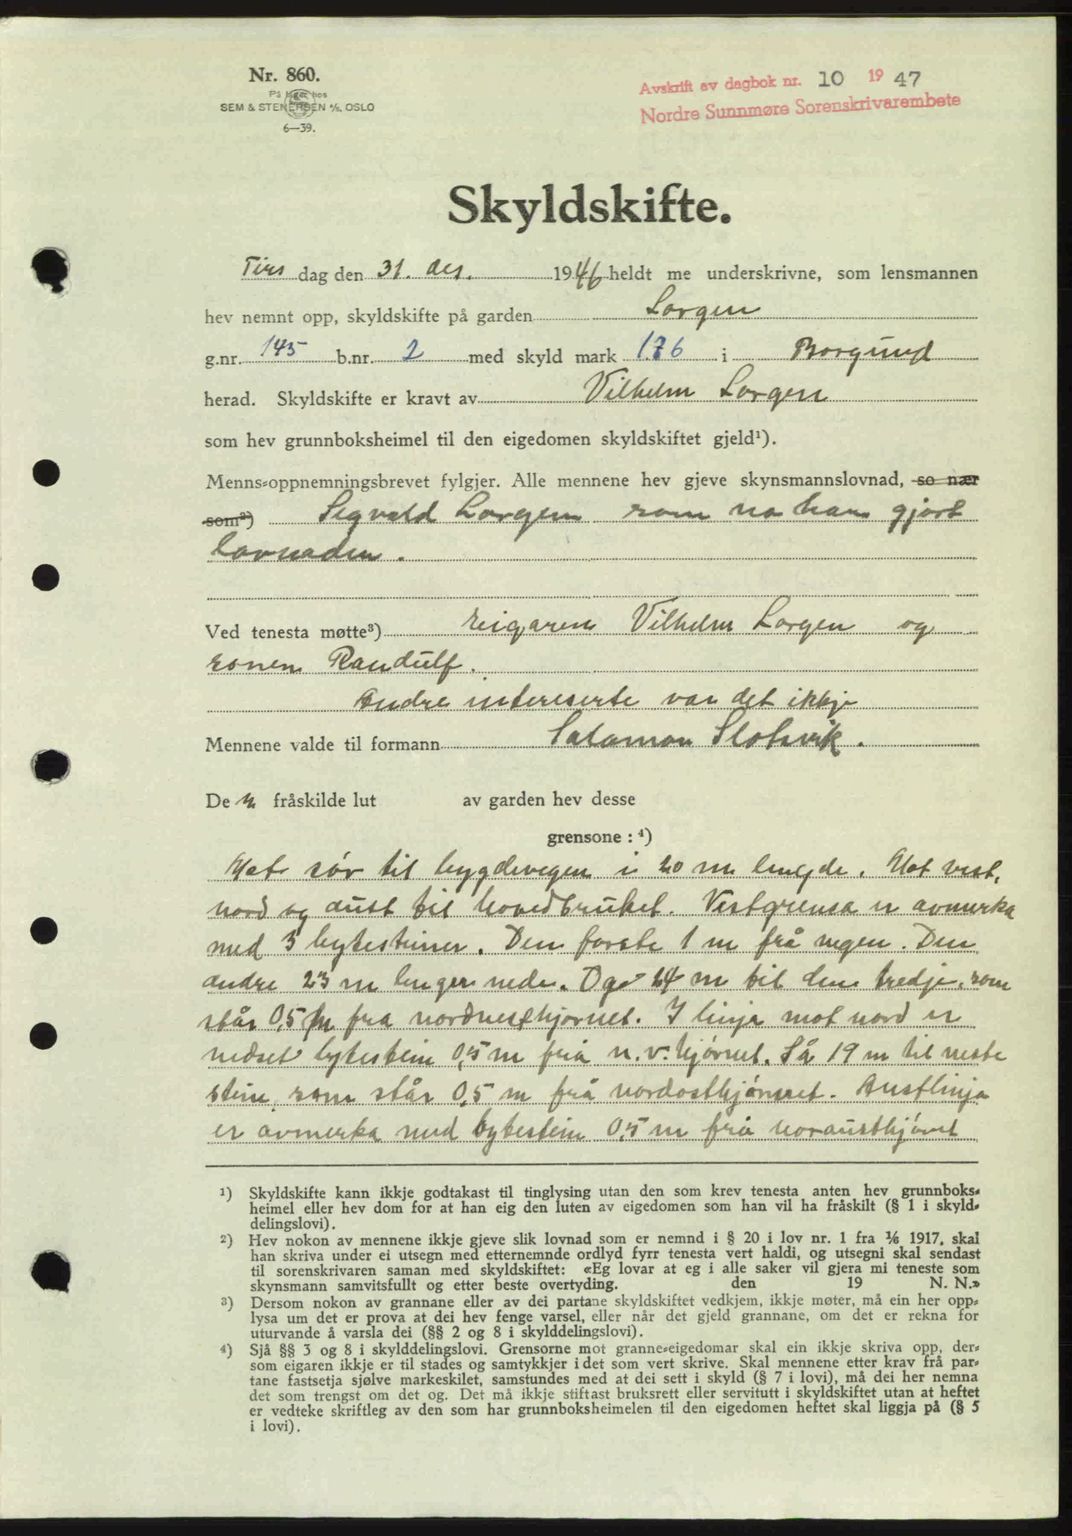 Nr. 860.
På lager hos
SEM & STENERSEN A/S, OSLO
6—39.
Avskrift av dagbok nr. 10 1947
Nordre Sunnmøre Sorenskrivarembete
Skyldskifte.
Tirs dag den 31. des. 1946 heldt me underskrivne, som lensmannen
hev nemnt opp, skyldskifte på garden Lorgen
g.nr. 145 b.nr. 2 med skyld mark 176 i Borgund
herad. Skyldskifte er kravt av Vilhelm Lorgen
som hev grunnboksheimel til den eigedomen skyldskiftet gjeld¹).
Menns-oppnemningsbrevet fylgjer. Alle mennene hev gjeve skynsmannslovnad, so nær
som²) Sigvald Lorgen som no har gjort
lovnaden.
Ved tenesta møtte³) eigaren Vilhelm Lorgen og
sonen Randulf.
Andre intereserte var det ikkje
Mennene valde til formann Salamon Slotsvik.
De n fråskilde lut av garden hev desse
grensone : ⁴)
Mot sør til bygdevegen i 20 m lengde. Mot vest,
nord og aust til hovedbruket. Vestgrensa er avmerka
med 3 bytesteiner. Den første 1 m frå vegen. Den
andre 23 m lenger nede. Og 24 m til den tredje, som
står 0,5 m fra nordvesthjørnet. I linja mot nord er
nedset bytestein 0,5 m frå n.v. hjørnet. Så 19 m til neste
stein, som står 0,5 m frå nordosthjørnet. Austlinja
er avmerka med bytestein 0,5 m frå norausthjørnet
¹) Skyldskifte kann ikkje godtakast til tinglysing utan den som krev tenesta anten hev grunnboks-
heimel eller hev dom for at han eig den luten av eigedomen som han vil ha fråskilt (§ 1 i skyld-
delingslovi).
²) Hev nokon av mennene ikkje gjeve slik lovnad som er nemnd i § 20 i lov nr. 1 fra 1/6 1917, skal
han skriva under ei utsegn med etternemnde ordlyd fyrr tenesta vert haldi, og utsegni skal sendast
til sorenskrivaren saman med skyldskiftet: «Eg lovar at eg i alle saker vil gjera mi teneste som
skynsmann samvitsfullt og etter beste overtyding. den 19 N. N.»
³) Dersom nokon av grannane eller av dei partane skyldskiftet vedkjem, ikkje møter, må ein her opp-
lysa um det er prova at dei hev fenge varsel, eller når det gjeld grannane, om det er rekna for
uturvande å varsla dei (§§ 2 og 8 i skylddelingslovi).
⁴) Sjå §§ 3 og 8 i skylddelingslovi. Grensorne mot granne-eigedomar skal ein ikkje skriva opp, der-
som eigaren ikkje er til stades og samtykkjer i det som vert skrive. Skal mennene etter krav frå par-
tane fastsetja sjølve markeskilet, samstundes med at dei sett i skyld (§ 7 i lovi), må dei her nemna
det som trengst om det og. Det må ikkje stiftast bruksrett eller servitutt i skyldskiftet utan at heftet
er vedteke skriftleg av den som har grunnboksheimelen til den eigedomen heftet skal liggja på (§ 5
i lovi).